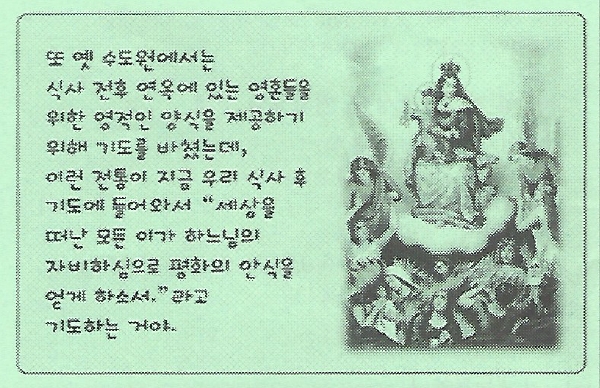 또 옛 수도원에서는
식사 전후 연옥에 있는 영혼들을
위한 영적인 양식을 제공하기
위해 기도를 바쳤는데,
이런 전통이 지금 우리 식사 후
기도에 들어와서 "세상을
떠난 모든 이가 하느님의
자비하심으로 평화의 안식을
얻게 하소서."라고
기도하는 거야.